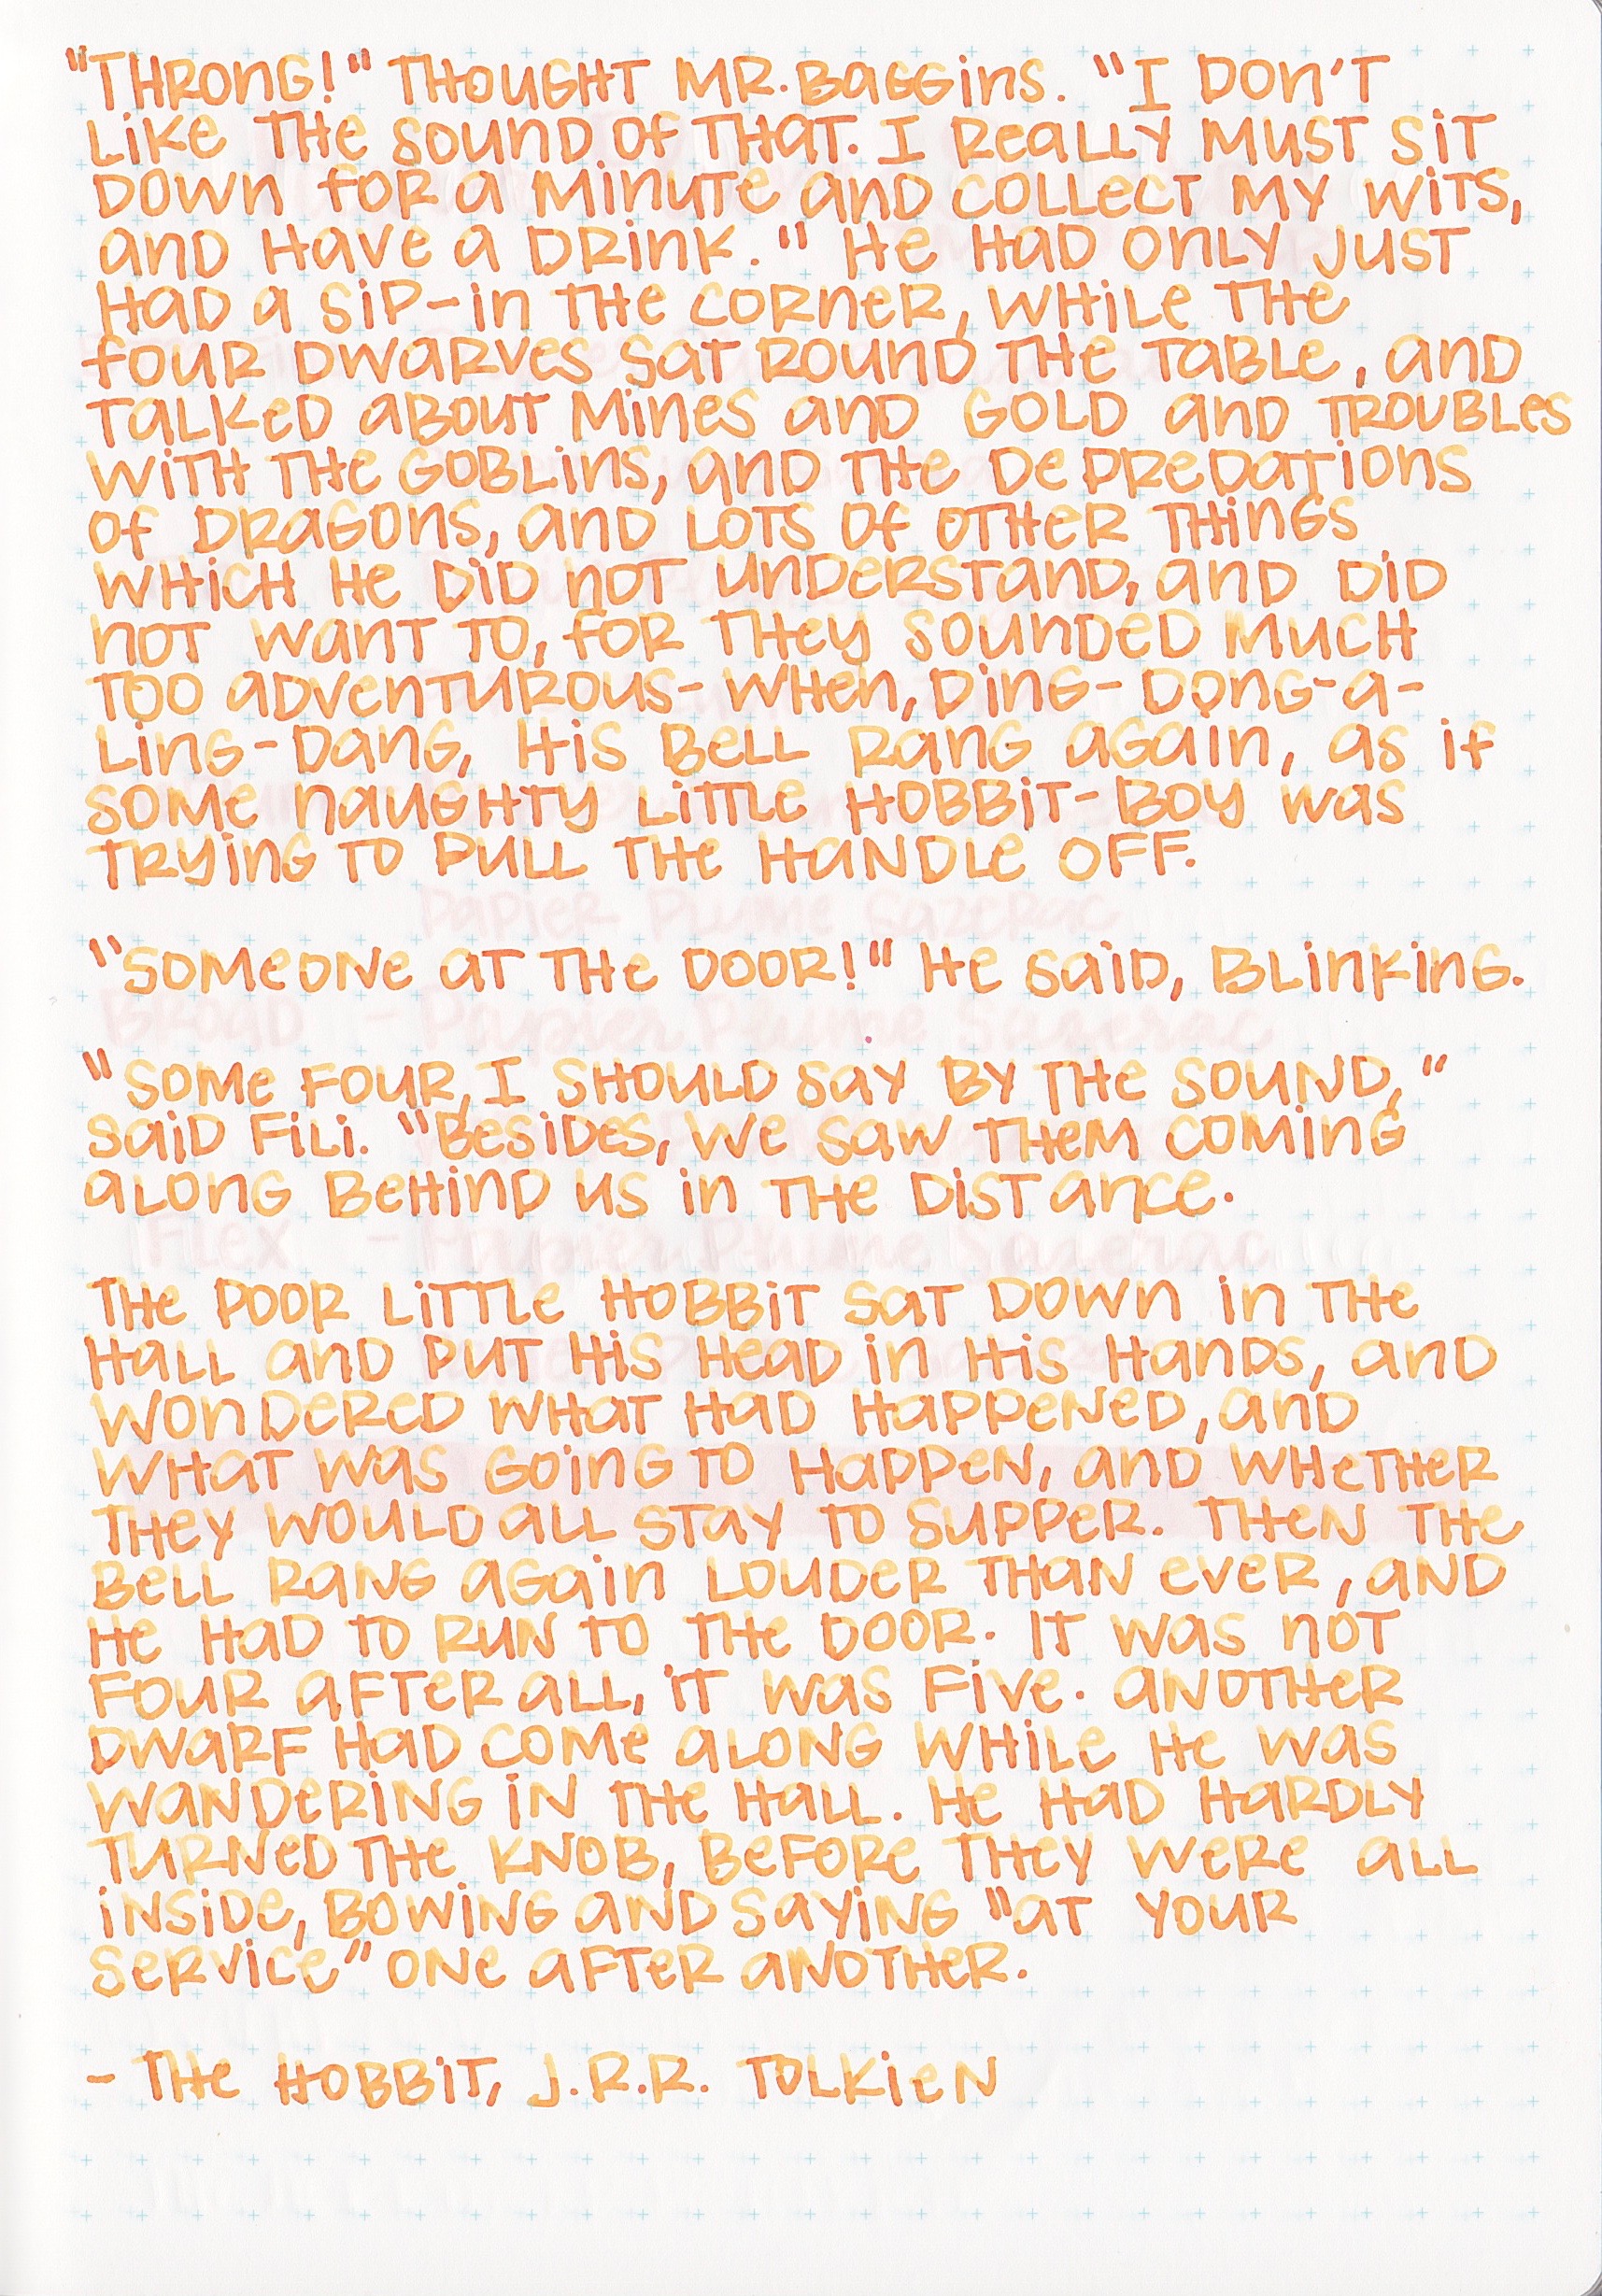 "Throng!" thought Mr. Baggins. "I don't
like the sound of that. I really must sit
down for a minute and collect my wits,
and have a drink." He had only just
had a sip-in the corner, while the
four dwarves sat round the table, and
talked about mines and gold and troubles
with the goblins, and the depredations
of dragons, and lots of other things
which he did not understand, and did
not want to, for they sounded much
too adventurous- when, ding-dong-a-
ling-dang, his bell rang again, as if
some naughty little hobbit-boy was
trying to pull the handle off.
Papier Plume Sazerac
"Someone at the door!" he said, blinking.
Broad - Papier Plume Sazerac
"Some four, I should say by the sound,"
said Fili. "Besides, we saw them coming
along behind us in the distance.
Flex - Papier Plume Sazerac
The poor little hobbit sat down in the
hall and put his head in his hands, and
wondered what had happened, and
what was going to happen, and whether
they would all stay to supper. Then the
bell rang again louder than ever, and
he had to run to the door. It was not
four after all, it was five. Another
dwarf had come along while he was
wandering in the hall. He had hardly
turned the knob, before they were all
inside, bowing and saying "at your
service" one after another.
- The Hobbit, J.R.R. Tolkien